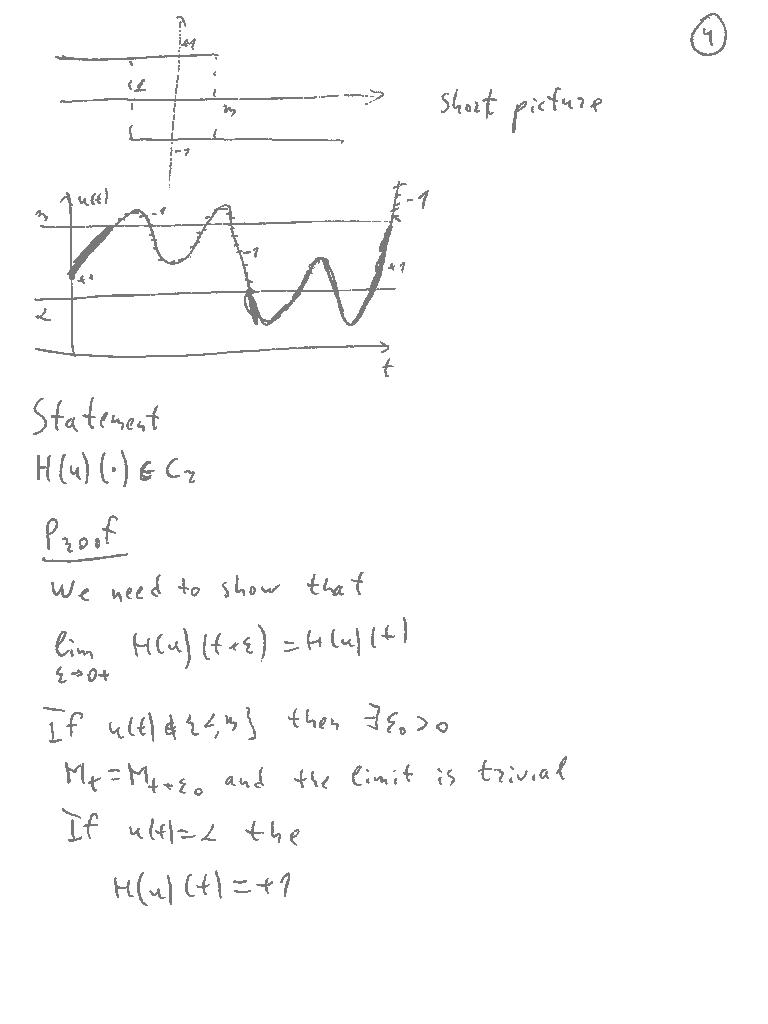 4
+1
α
β
-1
short picture
u(t)
β
-1
-1
-1
+1
+1
α
t
Statement
H(u)(·) ∈ C_r
Proof
We need to show that
lim H(u)(t+ε) = H(u)(t)
ε→0+
If u(t) ∉ {α, β} then ∃ε₀>0
M_t = M_{t+ε₀} and the limit is trivial
If u(t)=α the
H(u)(t) = +1